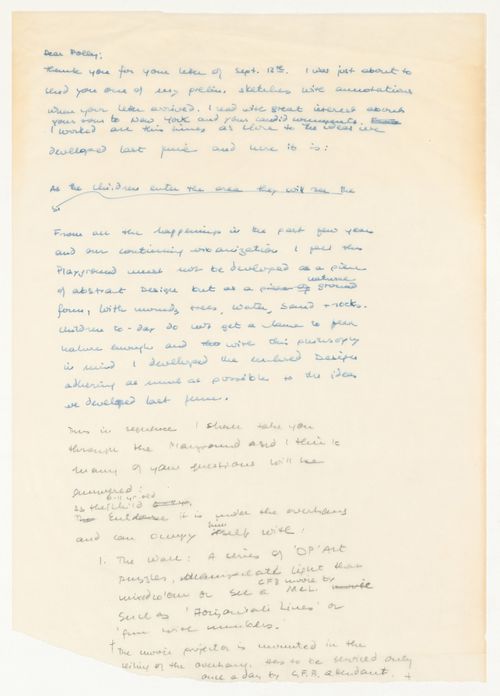 Dear Polly:
Thank you for your letter of Sept. 13th. I was just about to
send you one of my prelim. sketches with annotations
when your letter arrived. I read with great interest about
your visit to New York and your candid comments.
I worked all this time as close to the ideas we
developed last June and here it is:
As the children enter the area they will see the
From all the happenings in the past few years
and our continuing urbanization I feel this
Playground must not be developed as a piece
of abstract Design but as a nature ground
form, with mounds, trees, water, sand + rocks.
Children to-day do not get a chance to
nature enough and with this philosophy
in mind I developed the enclosed Design
adhering as much as possible to the ideas
we developed last June.
Thus in sequence I shall take you
through the Playground and I think
many of your questions will be
answered:
As the child
it is under the overhang
and can occupy itself with:
1. The Wall: A series of 'OP' Art
puzzles, light than
or see a CFB movie by McL.
Such as 'Horizontal Lines' or
'fun with numbers.'
† The movie projector is mounted in the
ceiling of the overhang. Has to be serviced only
once a day by C.F.B. attendant. †